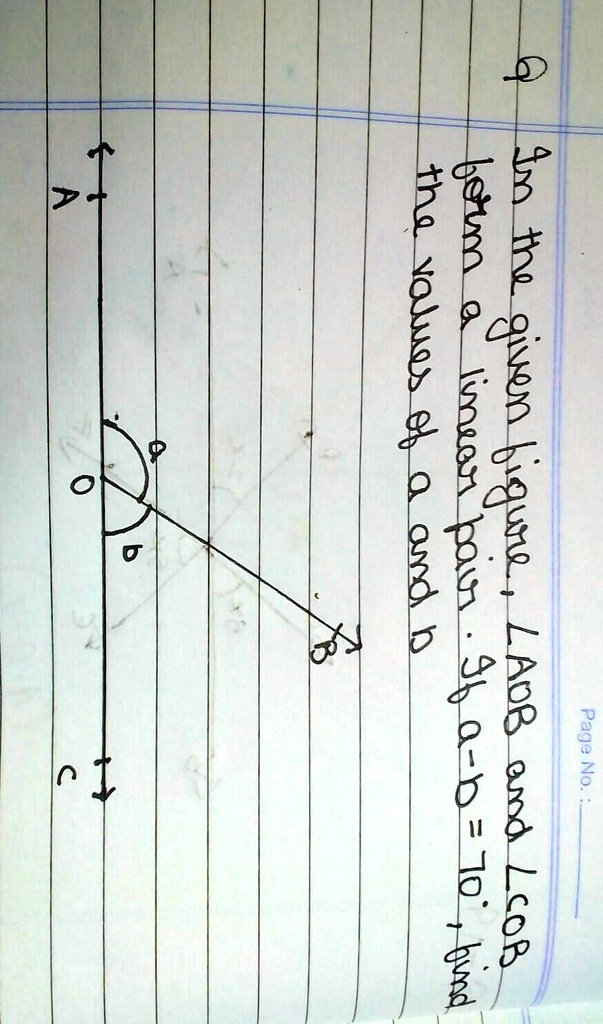 Page No.:
Q In the given figure, ∠AOB and ∠COB
form a linear pair. If a-b = 70°, find
the values of a and b
B
a
b
A
O
C